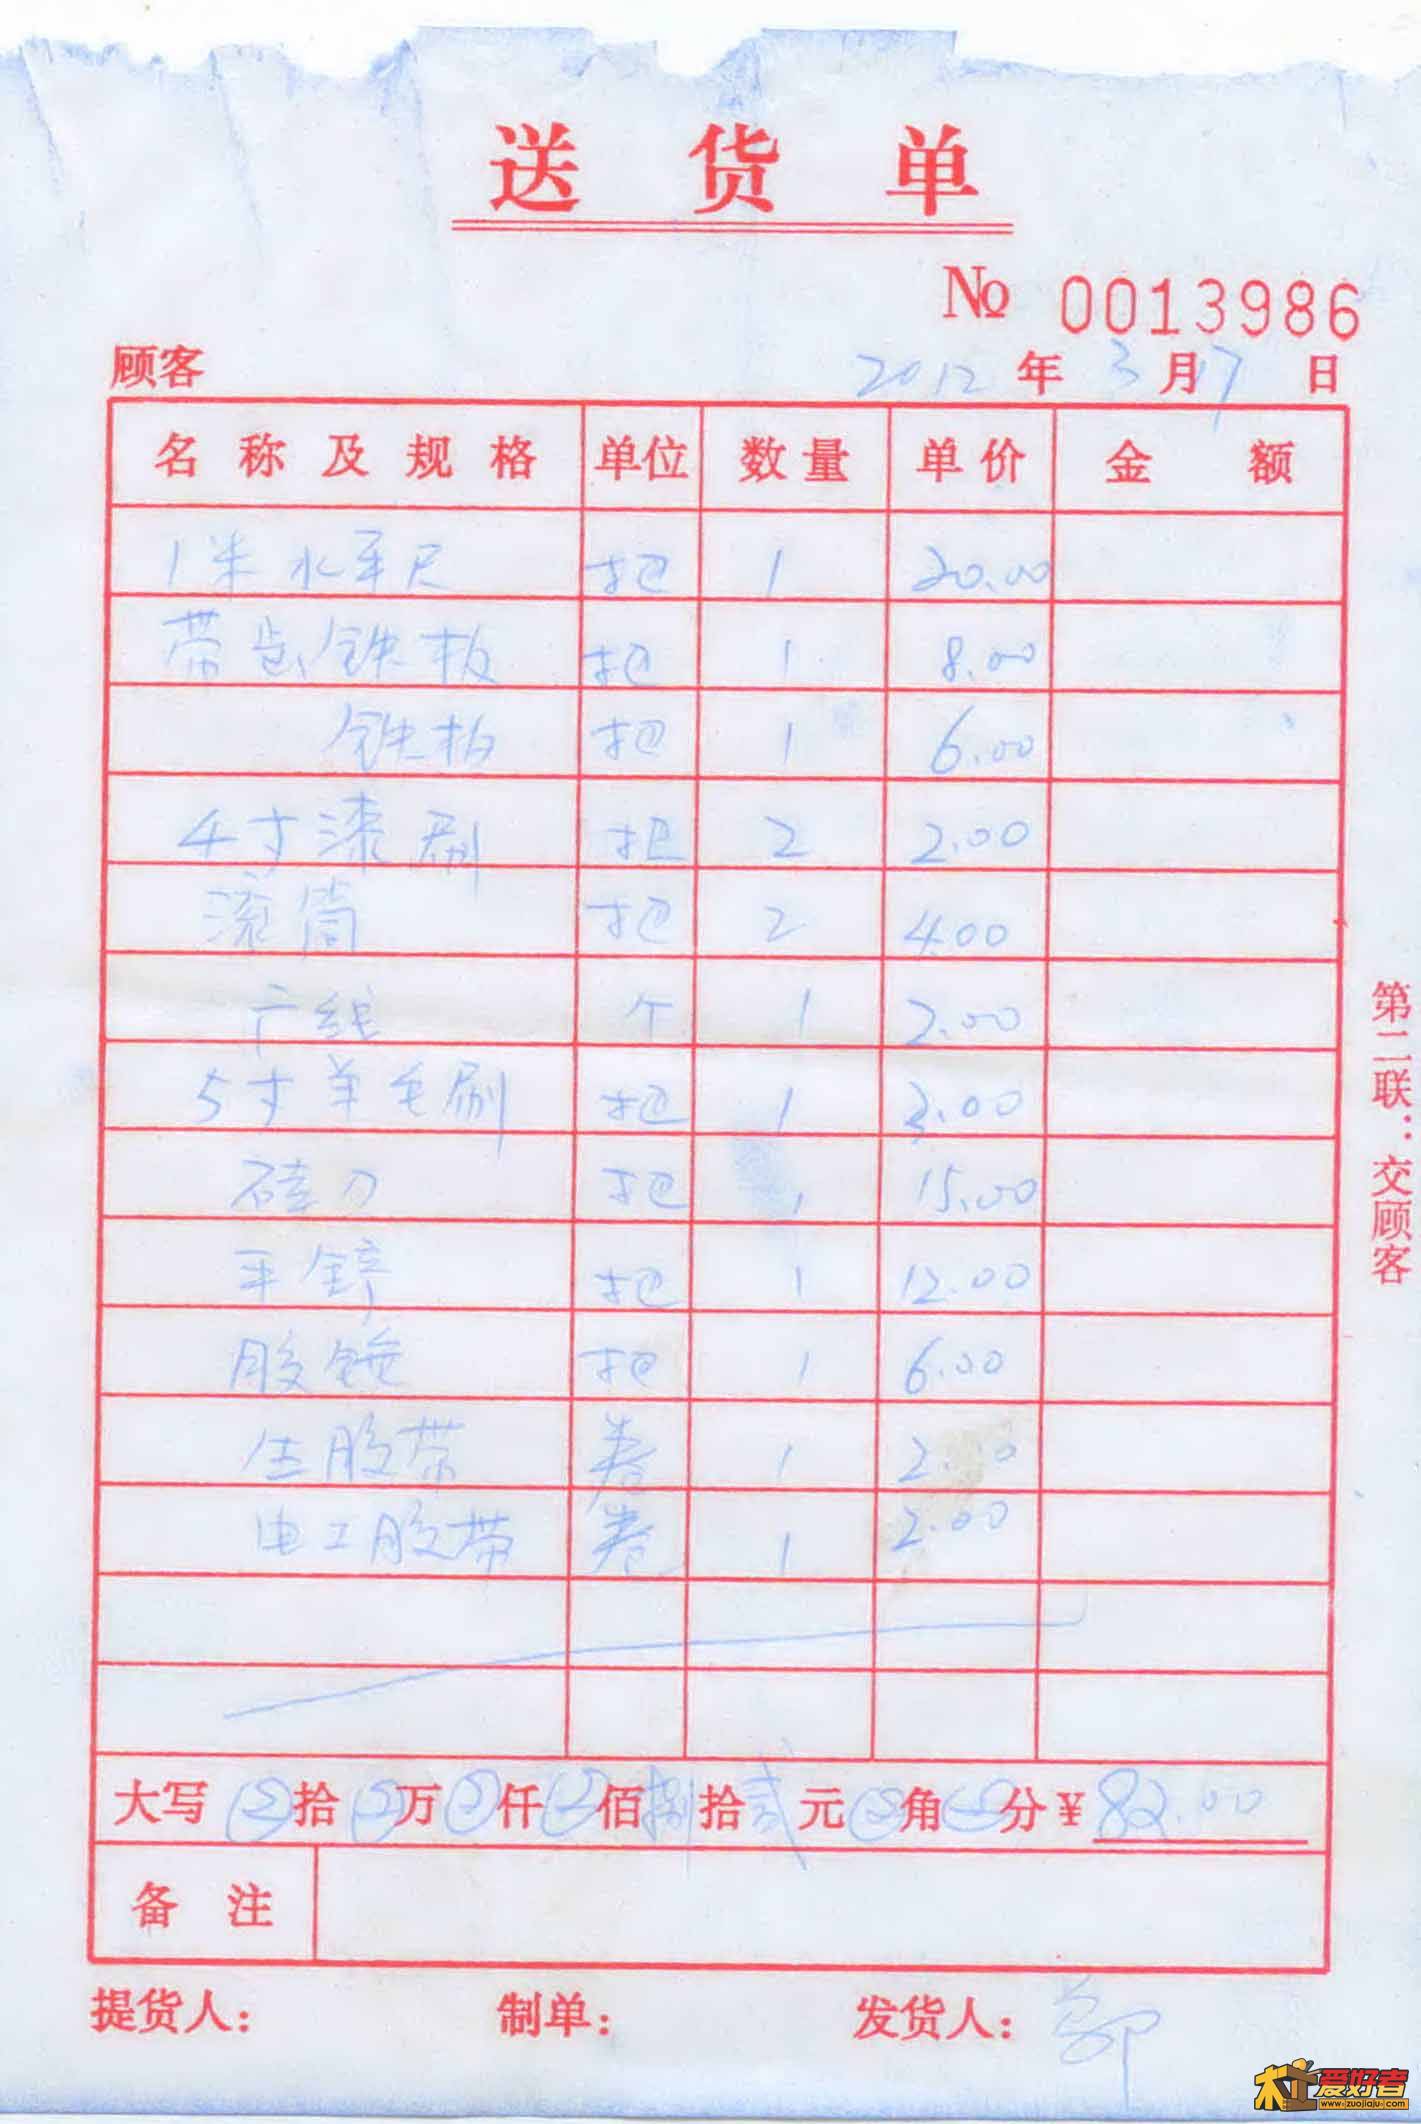 送货单
No 0013986
顾客 2012年3月17日
名称及规格 单位 数量 单价 金额
1米水平尺 把 1 20.00
带齿铁板 把 1 8.00
铁板 把 1 6.00
4寸漆刷 把 2 2.00
滚筒 把 2 4.00
个 1 2.00
5寸羊毛刷 把 1 3.00
刀 把 1 15.00
平锌 把 1 12.00
胶锤 把 1 6.00
生胶带 卷 1 2.00
电工胶带 卷 1 2.00
大写 拾 万 仟 佰 捌拾贰元 角 分 ¥82.00
备注
提货人: 制单: 发货人:
第二联:交顾客
爱好者
www.zuojiaju.com